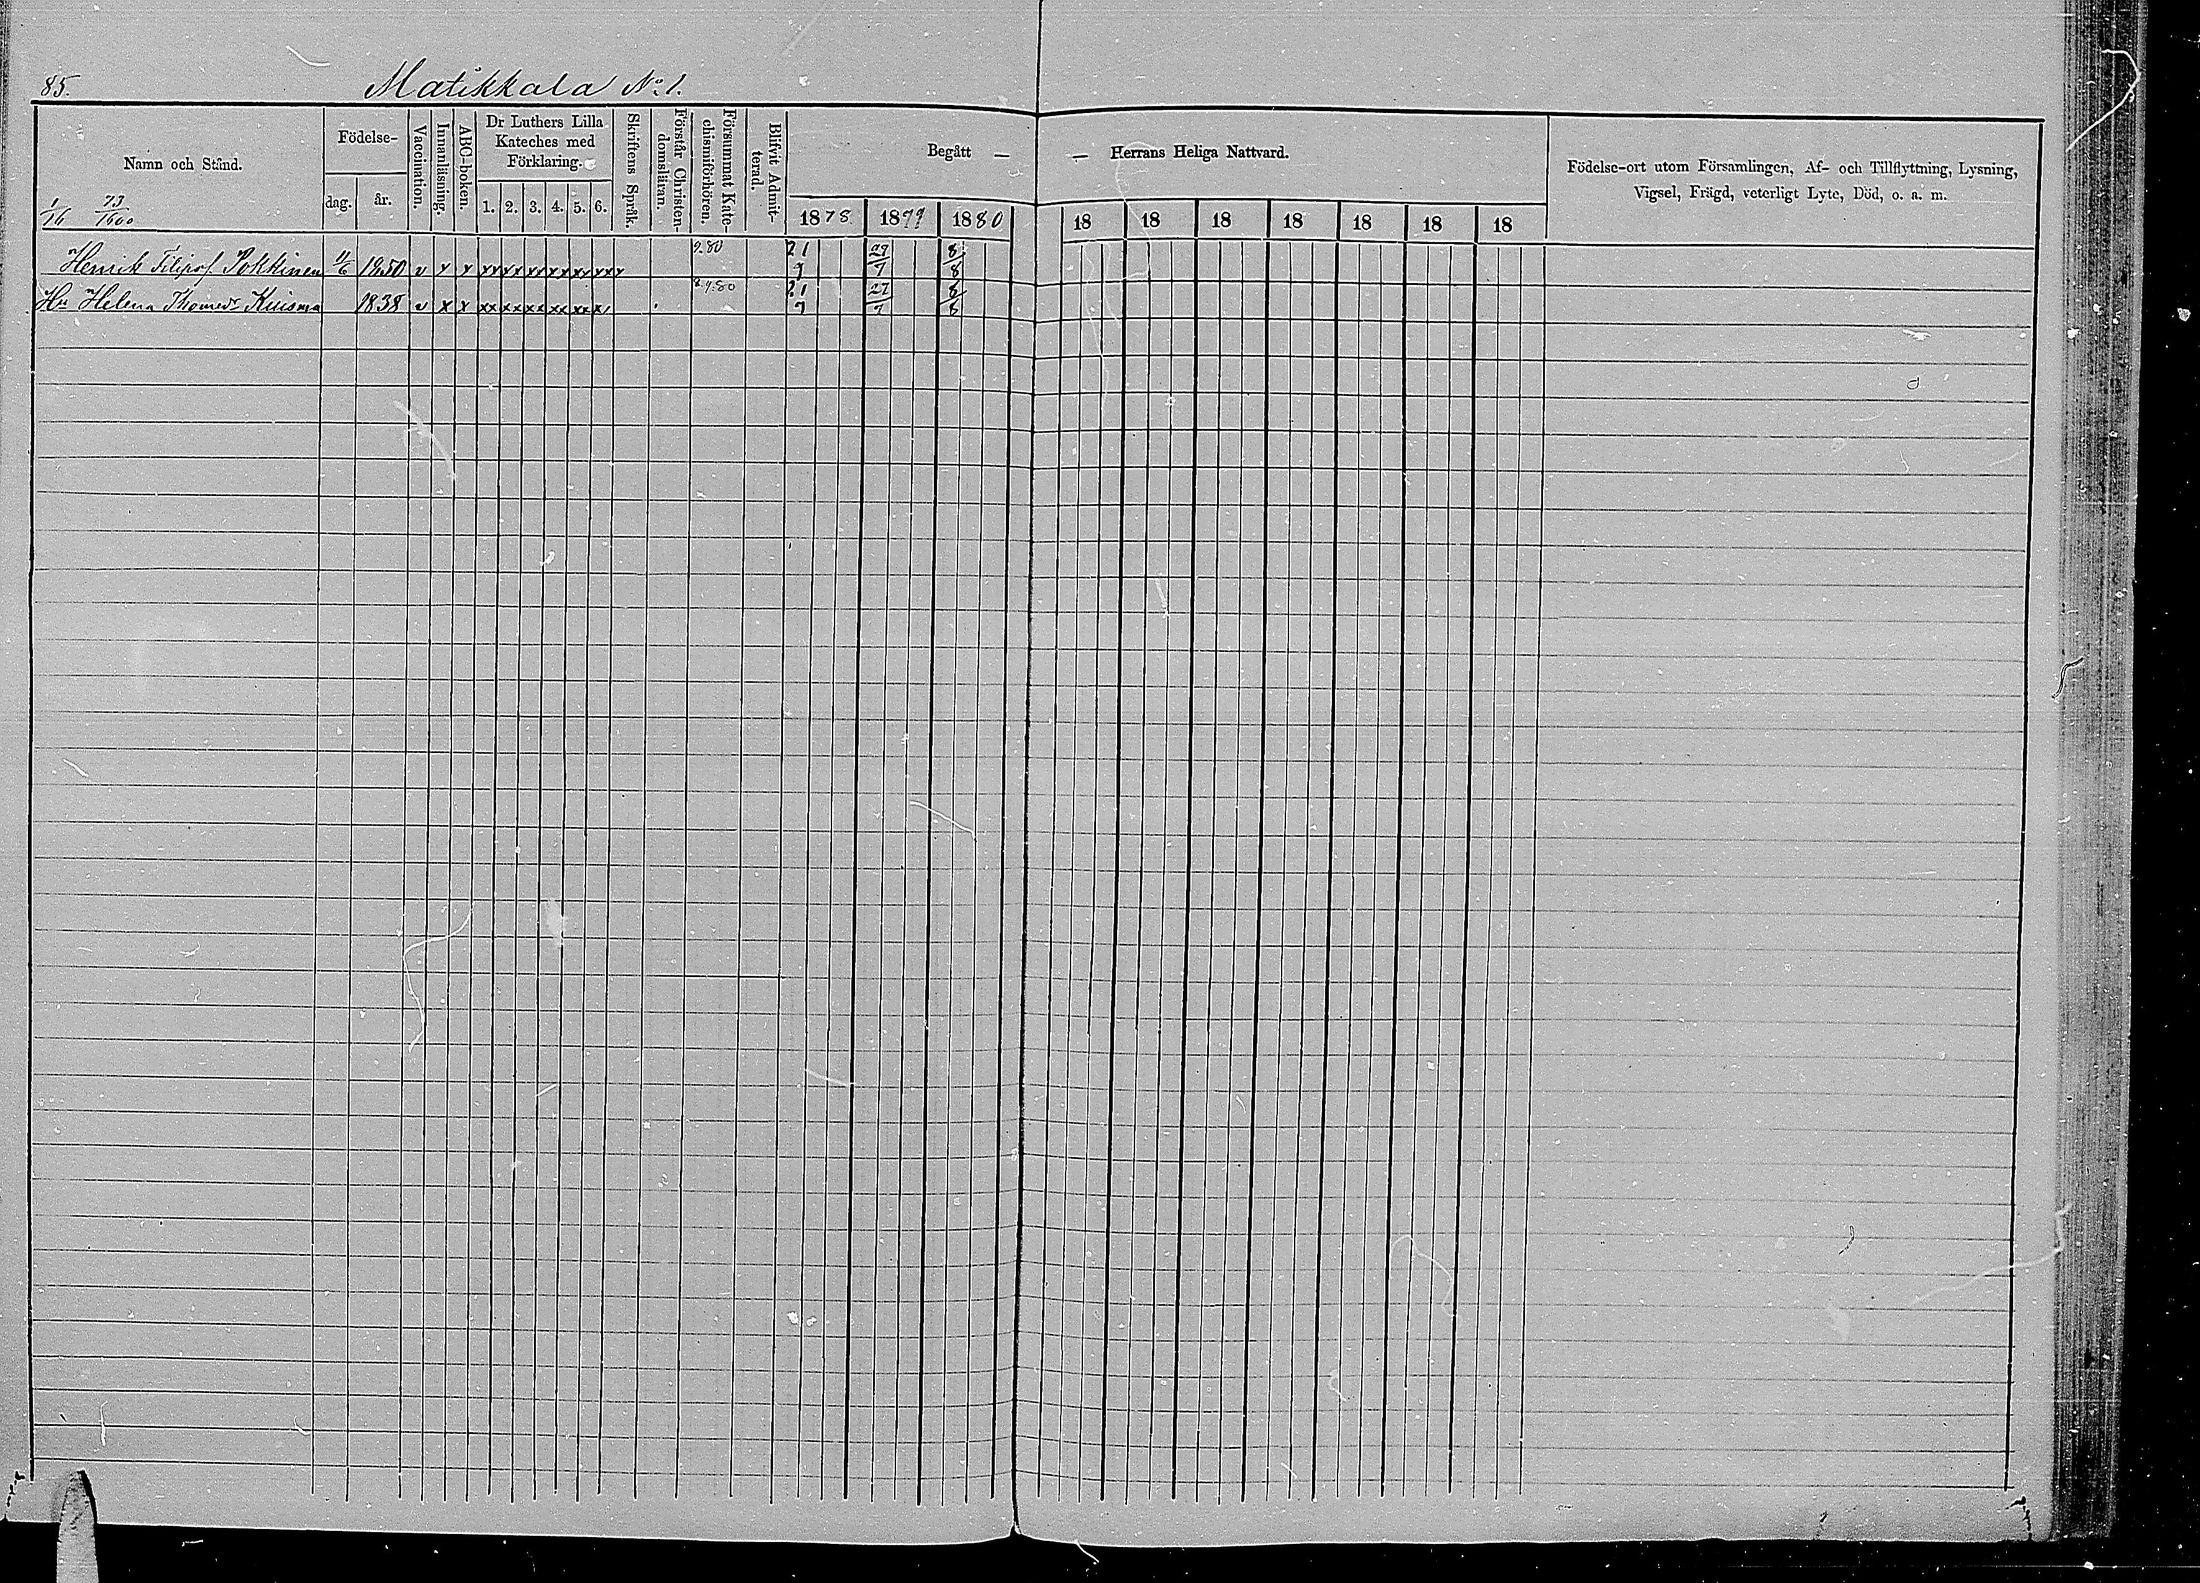 85. Matikkala No 1.
Namn och Stånd. Födelse- dag. år. Vaccination. Innanläsning. ABC-boken. Dr Luthers Lilla Kateches med Förklaring. 1. 2. 3. 4. 5. 6. Skriftens Språk. Förstår Christendomsläran. Försummat Katechismiförhören. Blifvit Admitterad. Begått — — Herrans Heliga Nattvard. Födelse-ort utom Församlingen, Af- och Tillflyttning, Lysning, Vigsel, Frägd, veterligt Lyte, Död, o. a. m.
1/16 73/1600 1878 1879 1880 18 18 18 18 18 18 18
Henrik Filipsf. Pokkinen 11/6 1850 v x x xx xx xx xx xx xx x 9.80 21/7 27/7 8/8
Hu Helena Thomedr Kuisma 1838 v x x xx xx xx xx xx x/ 8.9.80 21/7 27/7 8/8